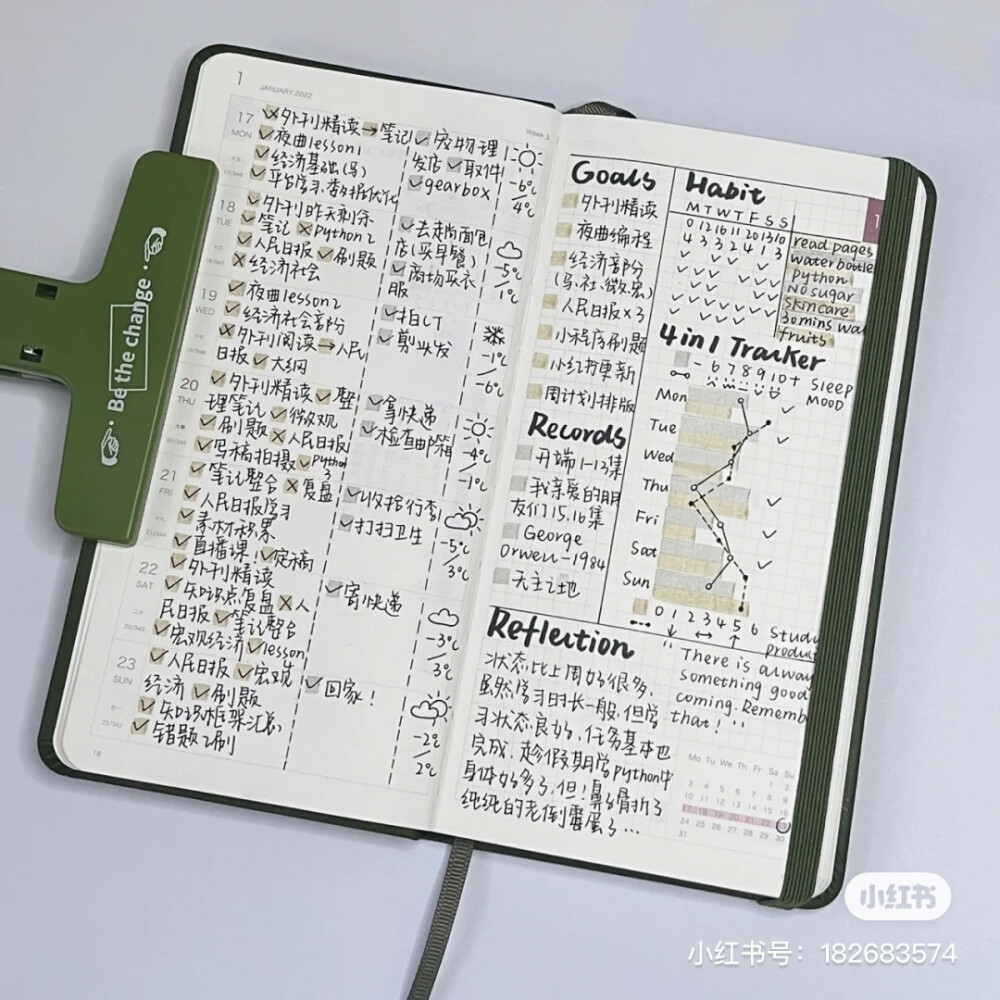 1 JANUARY 2022
Week 3
17 MON
外刊精读→笔记
夜曲lesson1
经济基础(马)
宠物理
发店 取件
gearbox
-6℃/4℃
18 TUE
外刊昨天剩余
笔记 Python2
人民日报 刷题
经济社会
去走尚面包
店(买早餐)
商场买衣
服
-5℃/1℃
19 WED
夜曲lesson2
经济社会部份
外刊阅读→人民
日报 大纲
拍CT
剪头发
-1℃/-6℃
20 THU
外刊精读 整
理笔记 微观
刷题 人民日报
写稿拍摄 Python
3
拿快递
检查邮箱
-4℃/-1℃
21 FRI
笔记整合 复盘
人民日报学习
素材积累
直播课! 定稿
收拾行李
打扫卫生
-5℃/3℃
22 SAT
外刊精读
知识点复盘 人
民日报 笔记整合
宏观经济 lesson
寄快递
-3℃/3℃
23 SUN
人民日报 宏观
经济 刷题
知识框架汇总
错题2刷
回家!
-2℃/2℃
18
Goals
外刊精读
夜曲编程
经济部分
(马.社.微.宏)
人民日报×3
小程序刷题
小红书更新
周计划排版
Records
开端1-13集
我亲爱的朋
友们15.16集
George
Orwell-1984
天主之地
Habit
1
M T W T F S S
0 12 16 11 20 13 10 read pages
4 3 3 2 4 1 3 water bottle
Python
No sugar
Skincare
30 mins wa
fruits
4 in 1 Tracker
- 6 7 8 9 10 + Sleep
MOOD
Mon
Tue
Wed
Thu
Fri
Sat
Sun
0 1 2 3 4 5 6 Study
produc
Reflection
状态比上周好很多,
虽然学习时长一般,但学
习状态良好,任务基本也
完成,趁假期学python中
身体好多了,但!鼻骨骨折了
纯纯的老倒霉蛋了…
There is alway
something good
coming. Rememb
that!
Mo Tu We Th Fr Sa Su
1 2
3 4 5 6 7 8 9
10 11 12 13 14 15 16
17 18 19 20 21 22 23
24 25 26 27 28 29 30
31
Be the change
小红书
小红书号：182683574